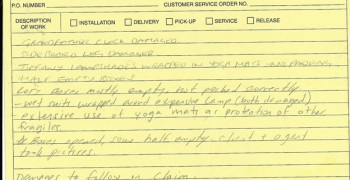 P.O. NUMBER CUSTOMER SERVICE ORDER NO.
DESCRIPTION OF WORK INSTALLATION DELIVERY PICK-UP SERVICE RELEASE
GRANDFATHER CLOCK DAMAGED
SIDEBOARD LEG DAMAGED
TIFFANY LAMPSHADES WRAPPED IN YOGA MATS
HALF EMPTY BOXES
- boxes mostly empty, not packed correctly
- wet suits wrapped around expensive lamp (both damaged)
- extensive use of yoga mats as protection of other
fragiles.
Boxes opened, some half empty, client + agent
took pictures.
Damages to follow in claim.